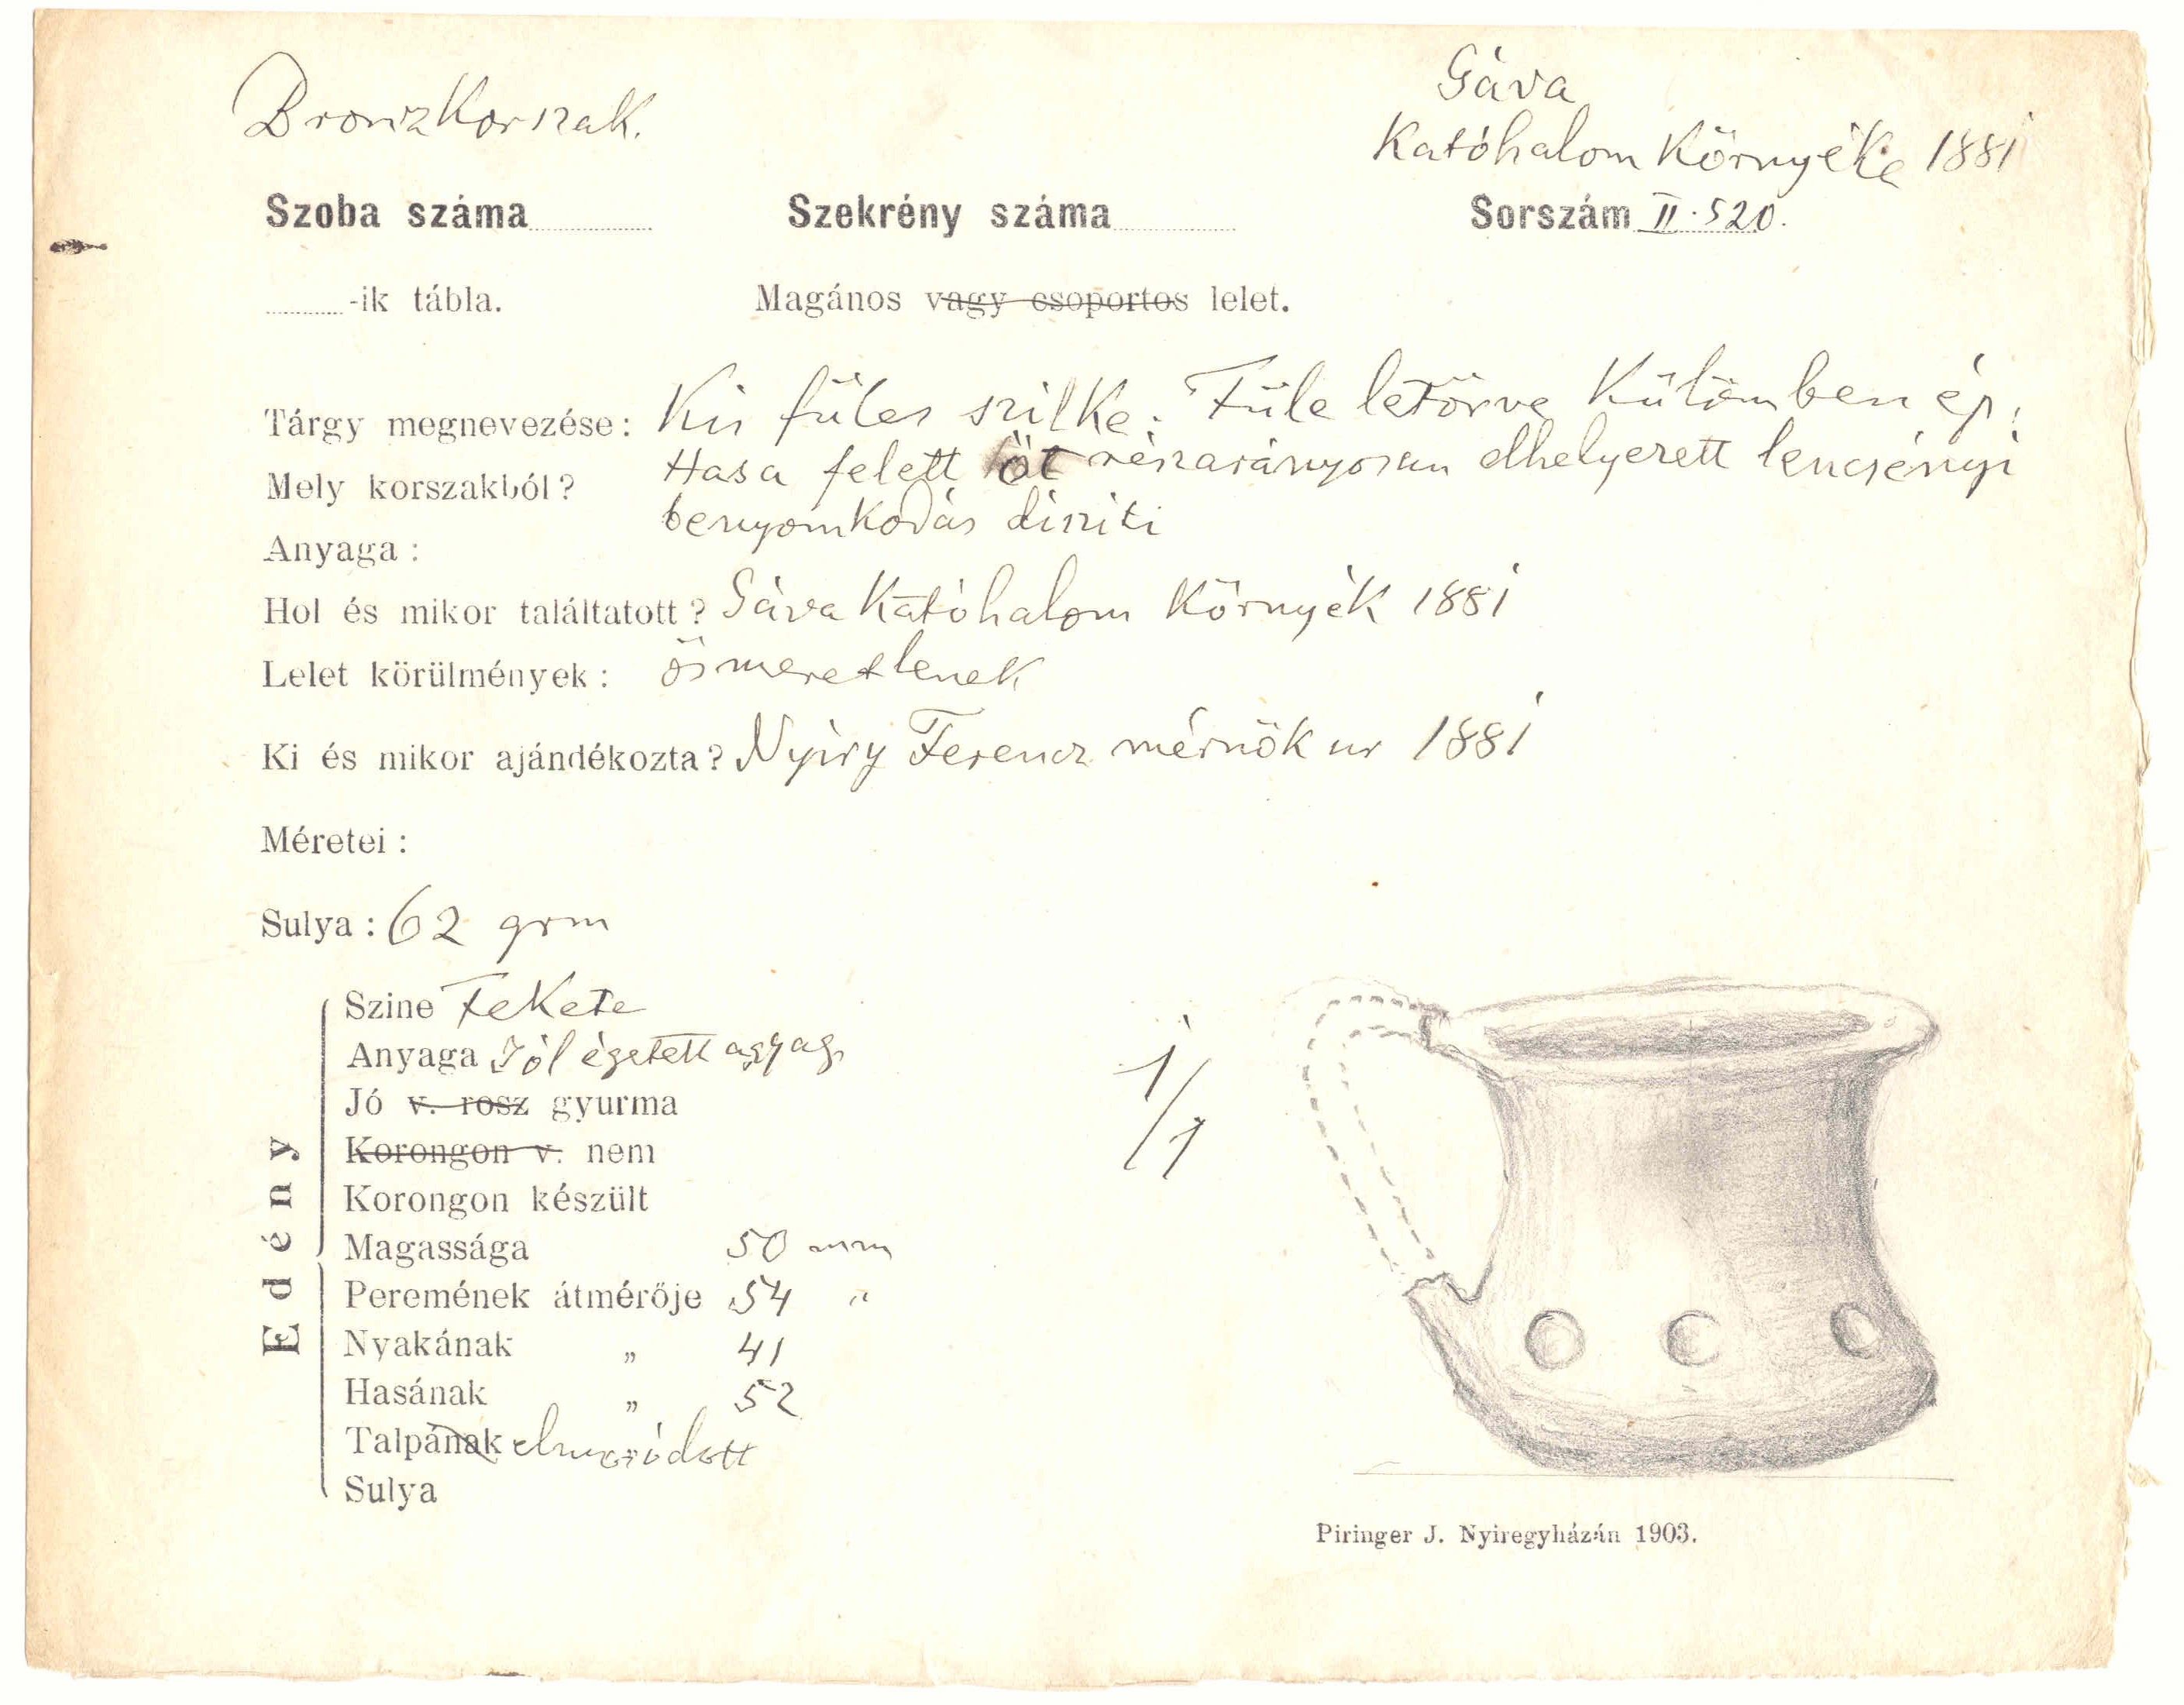 Bronzkorszak.
Gáva
Katóhalom Környéke 1881
Szoba száma Szekrény száma Sorszám II. 520.
-ik tábla. Magános vagy csoportos lelet.
Tárgy megnevezése: Kis füles szilke. Füle letörve Külömben ép.
Mely korszakból? Hasa felett öt részarányosan elhelyezett lencsényi
benyomkodás disziti
Anyaga:
Hol és mikor találtatott? Gáva Katóhalom Környék 1881
Lelet körülmények: ösmeretlenek
Ki és mikor ajándékozta? Nyiry Ferencz mérnök ur 1881
Méretei:
Sulya: 62 grm
Edény
Szine Fekete
Anyaga Jól égetett agyag
Jó v. rosz gyurma
Korongon v. nem
Korongon készült
Magassága 50 mm
Peremének átmérője 54 "
Nyakának " 41
Hasának " 52
Talpának
Sulya
1/1
Piringer J. Nyiregyházán 1903.